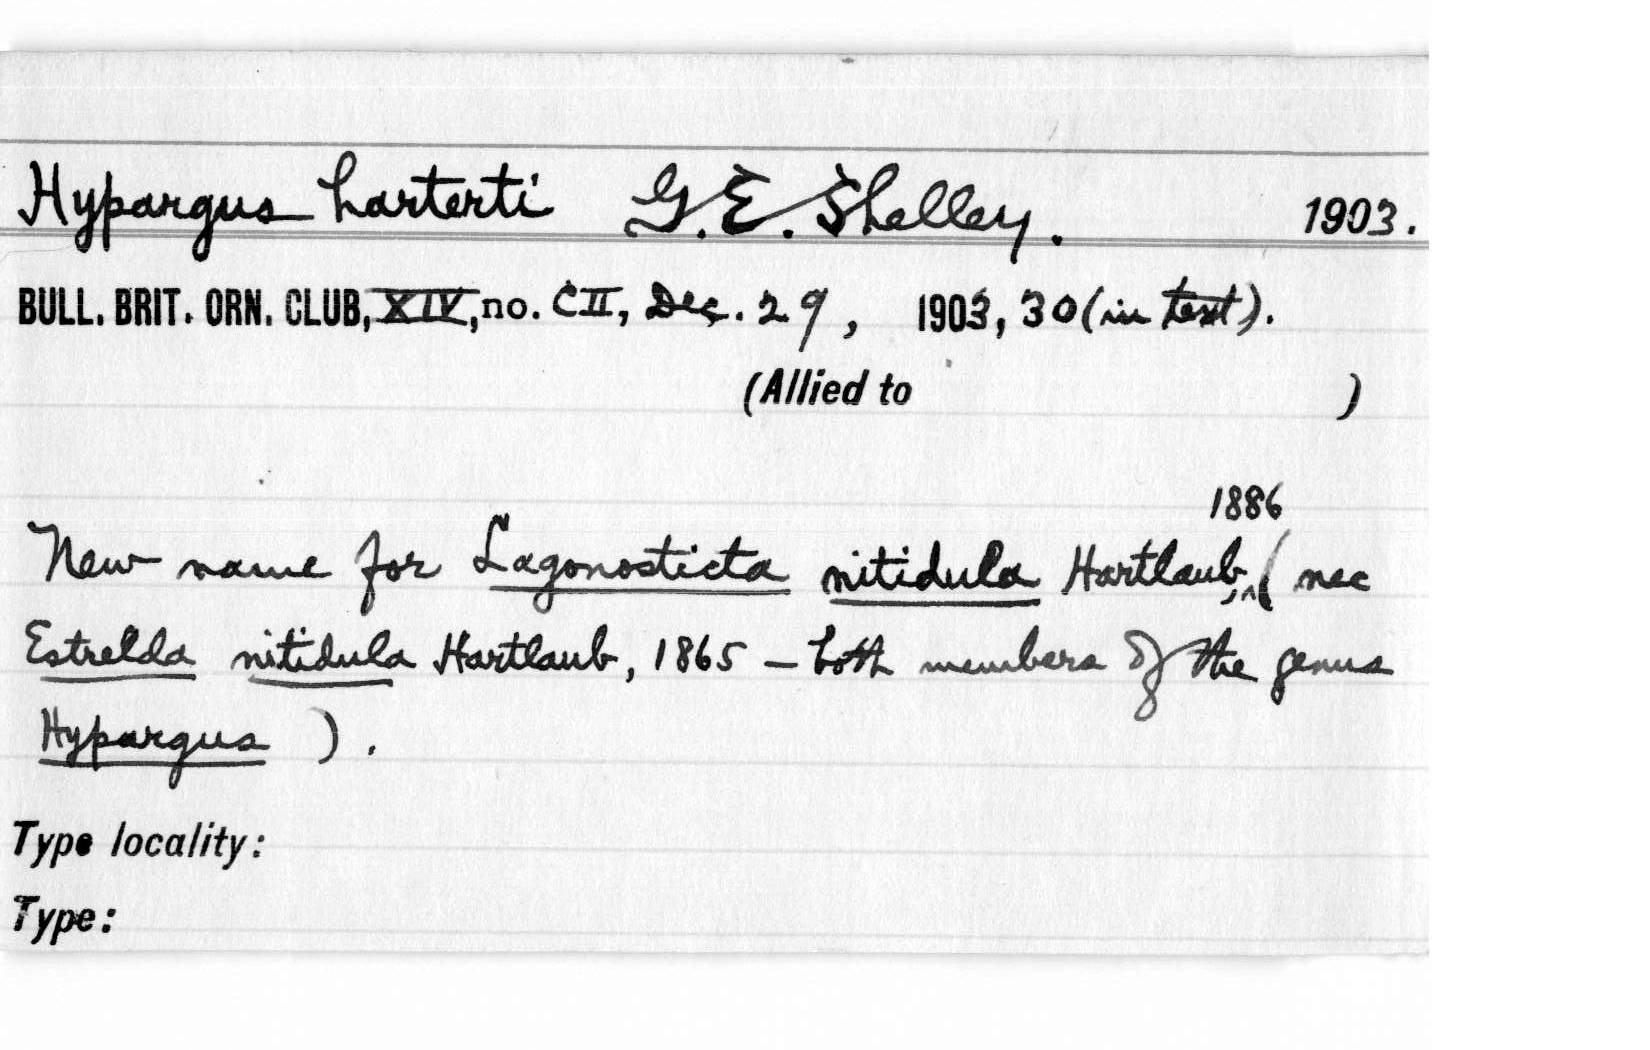 Hypargus harterti G.E. Shelley. 1903.
BULL. BRIT. ORN. CLUB, XIV, no. CII, Dec. 29, 1903, 30 (in text).
(Allied to )
1886
New name for Lagonosticta nitidula Hartlaub,^ (nec
Estrelda nitidula Hartlaub, 1865 – both members of the genus
Hypargus ).
Type locality:
Type: